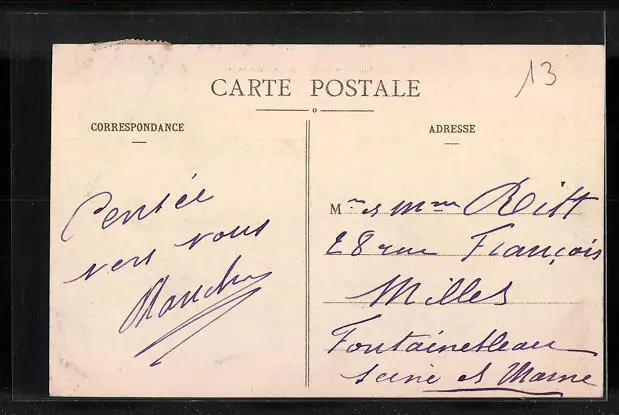 13
CARTE POSTALE
CORRESPONDANCE
Pensée
vers vous
ADRESSE
M r et Mme Ritt
28 rue François
Milles
Fontainebleau
Seine et Marne